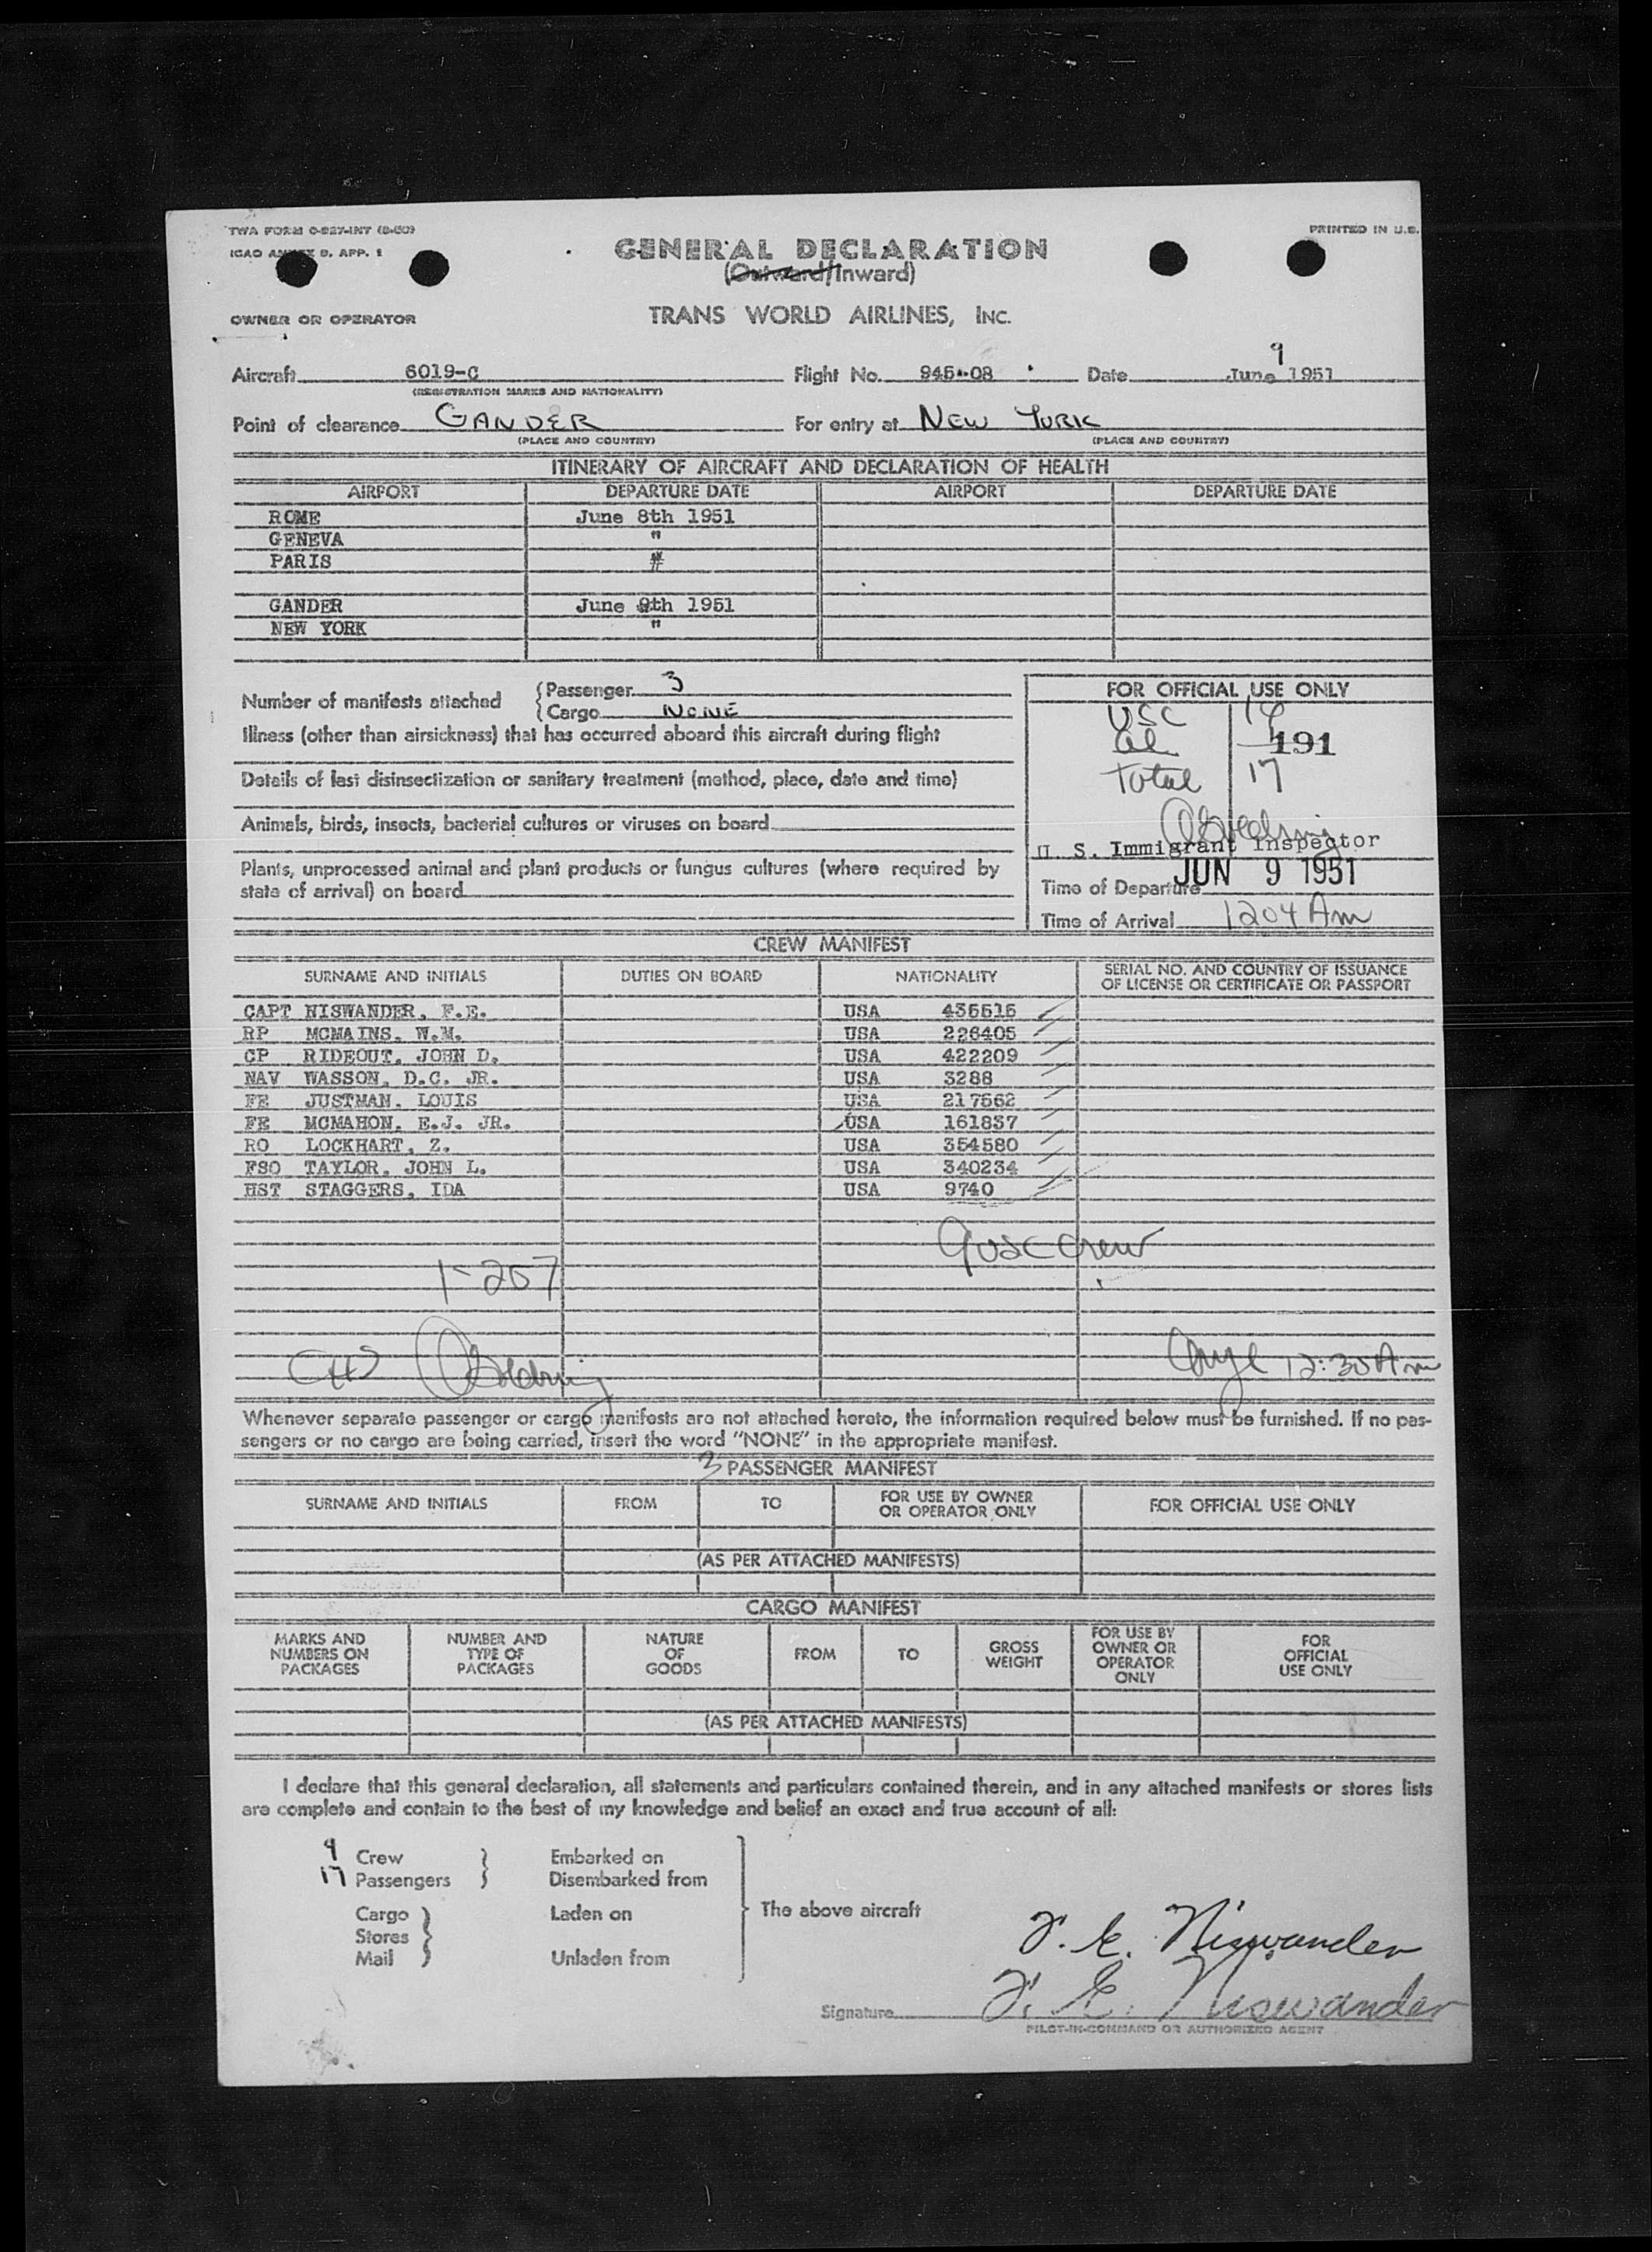 TWA FORM O-827-INT (8-50)
PRINTED IN U.S.
ICAO ANNEX 9, APP. 1
GENERAL DECLARATION
(Outward/Inward)
OWNER OR OPERATOR
TRANS WORLD AIRLINES, INC.
9
Aircraft 6019-C Flight No. 945-08 Date June 1951
(REGISTRATION MARKS AND NATIONALITY)
Point of clearance GANDER For entry at NEW YORK
(PLACE AND COUNTRY) (PLACE AND COUNTRY)
ITINERARY OF AIRCRAFT AND DECLARATION OF HEALTH
AIRPORT DEPARTURE DATE AIRPORT DEPARTURE DATE
ROME June 8th 1951
GENEVA "
PARIS #
GANDER June 9th 1951
NEW YORK "
Number of manifests attached {Passenger 3
{Cargo NONE
Illness (other than airsickness) that has occurred aboard this aircraft during flight
Details of last disinsectization or sanitary treatment (method, place, date and time)
Animals, birds, insects, bacterial cultures or viruses on board
Plants, unprocessed animal and plant products or fungus cultures (where required by
state of arrival) on board
FOR OFFICIAL USE ONLY
USC
191
Total 17
U. S. Immigrant Inspector
JUN 9 1951
Time of Departure
Time of Arrival 1204 Am
CREW MANIFEST
SURNAME AND INITIALS DUTIES ON BOARD NATIONALITY SERIAL NO. AND COUNTRY OF ISSUANCE
OF LICENSE OR CERTIFICATE OR PASSPORT
CAPT NISWANDER, F.E. USA 435515
RP MCMAINS, W.M. USA 226405
CP RIDEOUT, JOHN D. USA 422209
NAV WASSON, D.C. JR. USA 3288
FE JUSTMAN, LOUIS USA 217562
FE MCMAHON, E.J. JR. USA 161837
RO LOCKHART, Z. USA 354580
FSO TAYLOR, JOHN L. USA 340234
HST STAGGERS, IDA USA 9740
9 USC Crew
1-207
12:30 Am
Whenever separate passenger or cargo manifests are not attached hereto, the information required below must be furnished. If no pas-
sengers or no cargo are being carried, insert the word "NONE" in the appropriate manifest.
3 PASSENGER MANIFEST
SURNAME AND INITIALS FROM TO FOR USE BY OWNER
OR OPERATOR ONLY FOR OFFICIAL USE ONLY
(AS PER ATTACHED MANIFESTS)
CARGO MANIFEST
MARKS AND
NUMBERS ON
PACKAGES
NUMBER AND
TYPE OF
PACKAGES
NATURE
OF
GOODS
FROM
TO
GROSS
WEIGHT
FOR USE BY
OWNER OR
OPERATOR
ONLY
FOR
OFFICIAL
USE ONLY
(AS PER ATTACHED MANIFESTS)
I declare that this general declaration, all statements and particulars contained therein, and in any attached manifests or stores lists
are complete and contain to the best of my knowledge and belief an exact and true account of all:
9 Crew } Embarked on
17 Passengers } Disembarked from
Cargo } Laden on
Stores
Mail } Unladen from
The above aircraft
F. E. Niswander
Signature F. E. Niswander
PILOT-IN-COMMAND OR AUTHORIZED AGENT